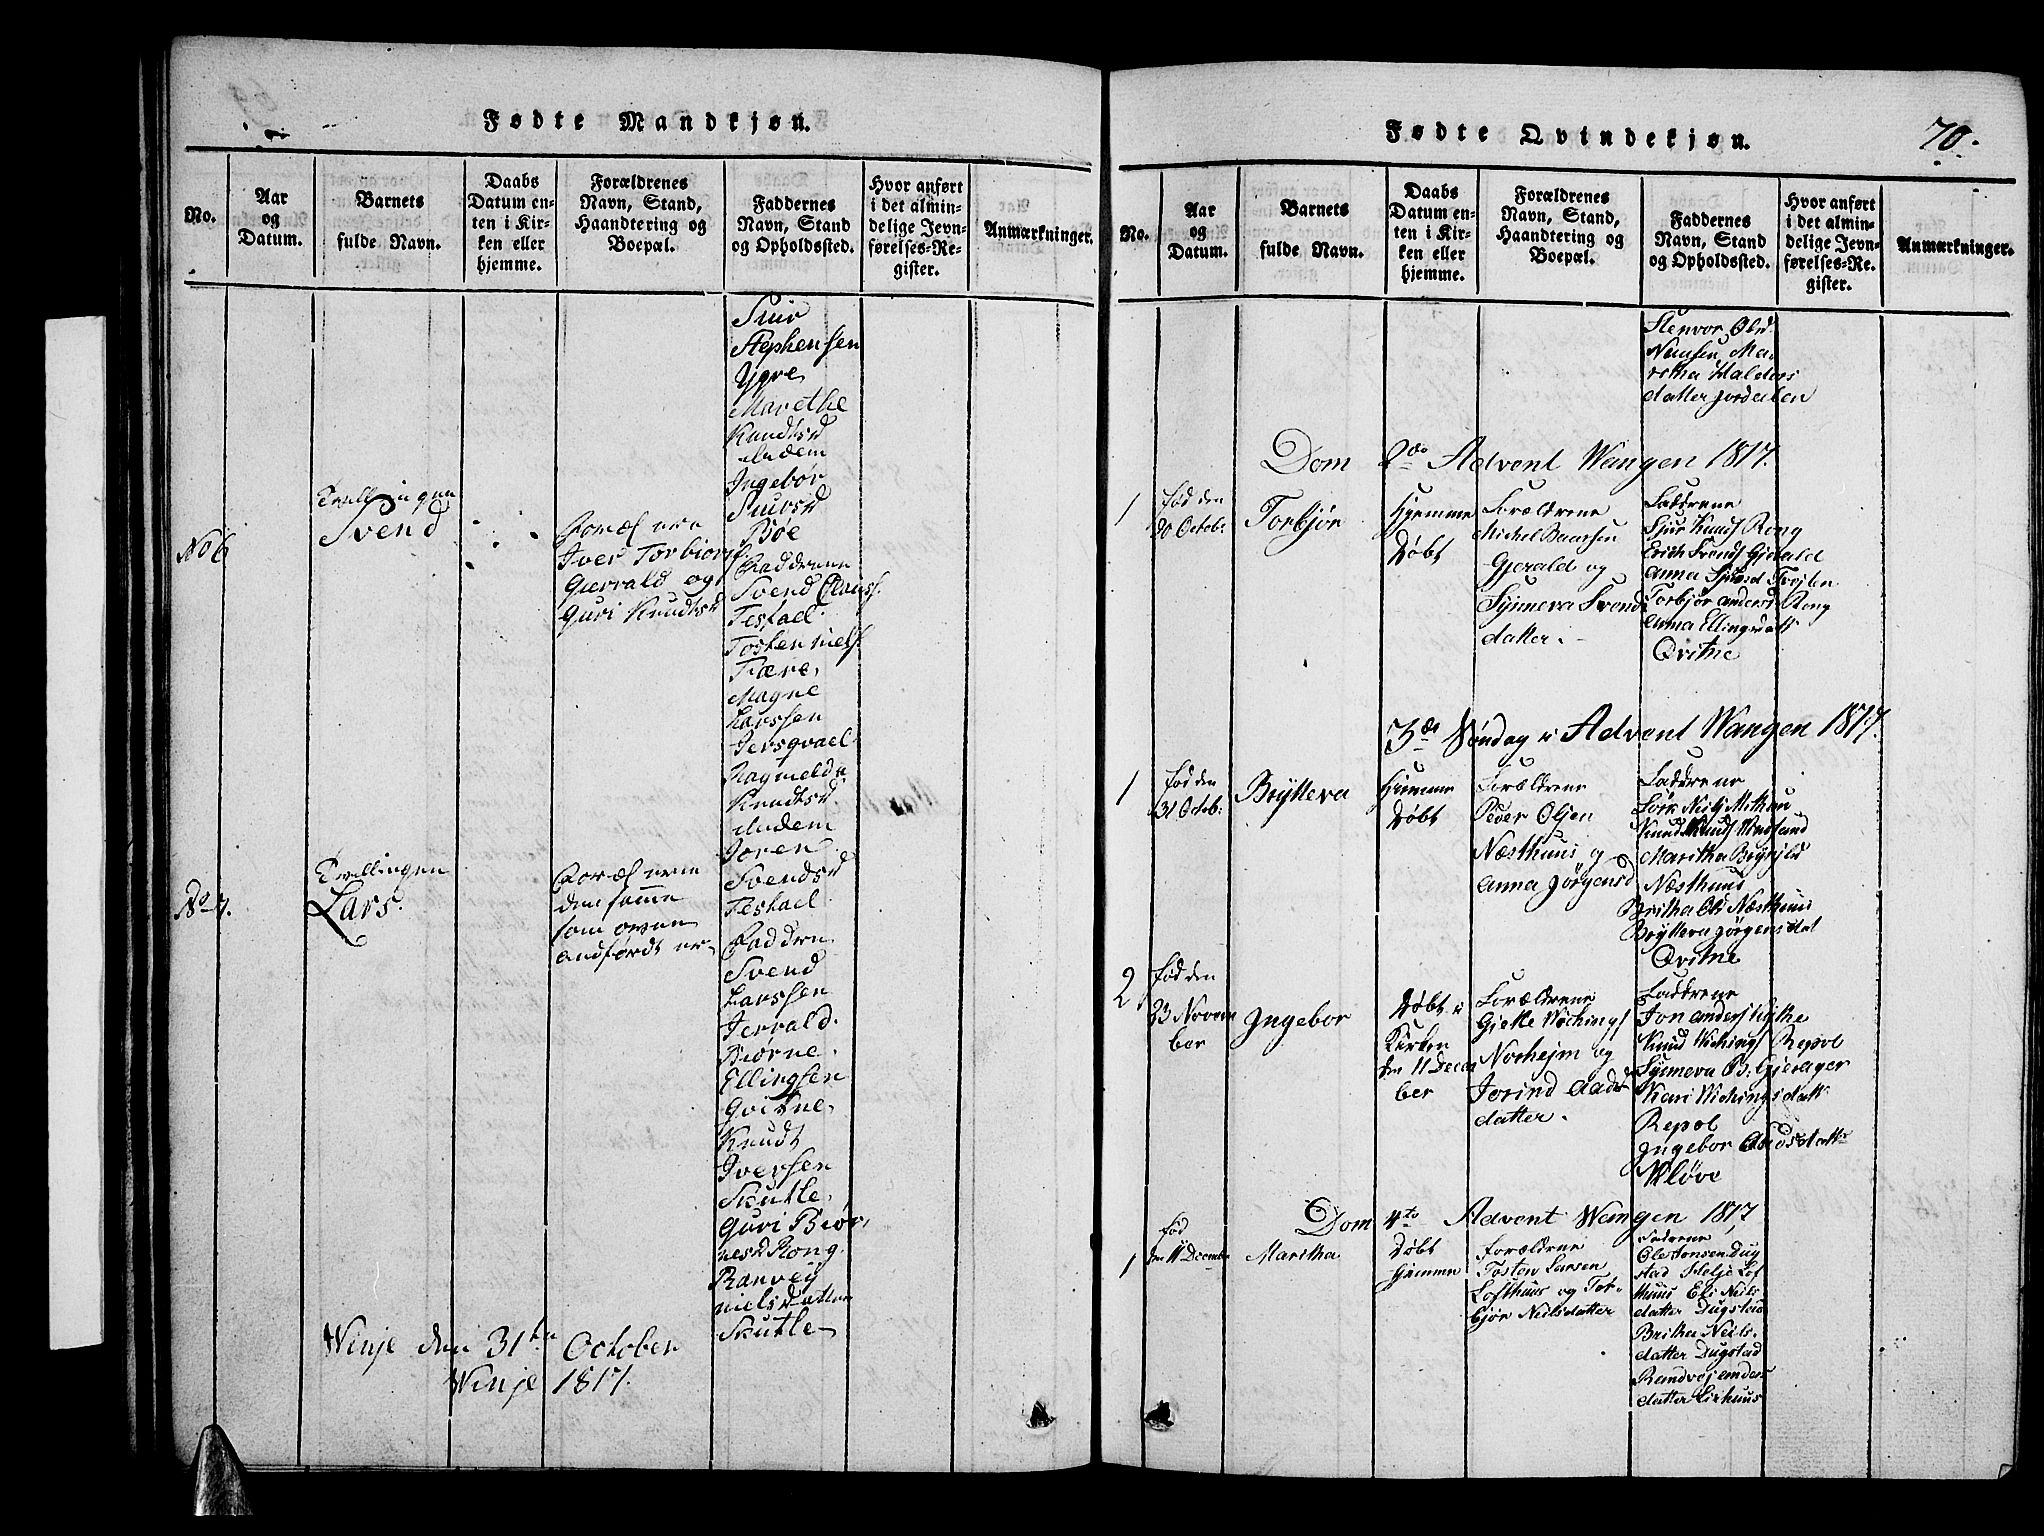 Fødte Mandkjøn.
No.
Aar
og
Datum.
Barnets
fulde Navn.
Daabs
Datum en-
ten i Kir-
ken eller
hjemme.
Forældrenes
Navn, Stand,
Haandtering og
Boepæl.
Faddernes
Navn, Stand
og Opholdssted.
Hvor anført
i det almin-
delige Jevn-
førelses-Re-
gister.
Anmærkninger.
Siur
Stephensen
Ygre
Marethe
Knudtsd
Indem
Ingebor
Siursd
Bøe
No 6
Tvillingen
Svend
Foræl erne
Iver Torbiors.
Gierrald og
Guri Knudtsd
Fadderne
Svend Clausf.
Testael
Tosten Nielsf
Fiære,
Magne
Larssen
Jersqvael
Ragnelda
Knudtsd
Indem
Joren
Svendsd
Testael
No 7.
Tvillingen
Lars.
Foræl erne
den samme
som oven
andførdt er
Faddren
Svend
Larssen
Jervald.
Biørne
Ellingsen
Qvitne,
Knudt
Iversen
Skutle,
Guri Biør,
nesd Rong
Ranvey
nielsdatter
Skutle
Winje den 31te October
Winje 1817.
Fødte Qvindekjøn.
70.
No.
Aar
og
Datum.
Barnets
fulde Navn.
Daabs
Datum en-
ten i Kir-
ken eller
hjemme.
Forældrenes
Navn, Stand,
Haandtering og
Boepæl.
Faddernes
Navn, Stand
og Opholdssted.
Hvor anført
i det almin-
delige Jevn-
førelses-Re-
gister.
Anmærkninger.
Stenvor Olsd
Nemsen, Ma-
retha Halders
datter Jordalen
Dom 2den Advent Wangen 1817.
1
Fød den
30 Octob:
Torbjør
Hjemme
Døbt
Forældrene
Michel Baarsen
Gjerald og
Synneva Svends
datter.
Faddrene
Sjur Knuds Rong
Erich Svends Gjerald
Anna Sjursd Tvejten
Torbjør Andersd Rong
Anna Ellingsdatt
Qvitne
3die Søndag i Advent Wangen 1817.
1
Fød den
31 Octob:
Brytteva
Hjemme
Døbt
Forældrene
Peder Olsen
Næsthuus og
Anna Jørgensd
Faddrene
Knud Knuds
Maritha Brynjld
Næsthuus
Britha Ols Næsthuus
Brytteva Jørgensdat
Qvitne
2
Fød den
23 Novem
ber
Ingebor
Døbt i
Kirken
den 11 Decem
ber
Forældrene
Gjette Wichings
Norhejm og
Jorind Aads
datter.
Faddrene
Jon Anders Kytte
Knud Wichings Repol
Synneva Gjerager
Kari Wichingsdatt
Repol
Ingebor Audsdatt
Kløve
Dom 4to Advent Wangen 1817
1
fød
den 11 Decembr
Maritha
Døbt
hjemme
Forældrene
Tosten Larsen
Lofthuus og Tor-
bjør Neilsdatter
Fadrene
Ole Tostensen Dug
stad Helje Lof
thuus Eli Neils
datter Dugstad
Britha Neils-
datter Dugstad
Randvej Anders
datter Lirhuus